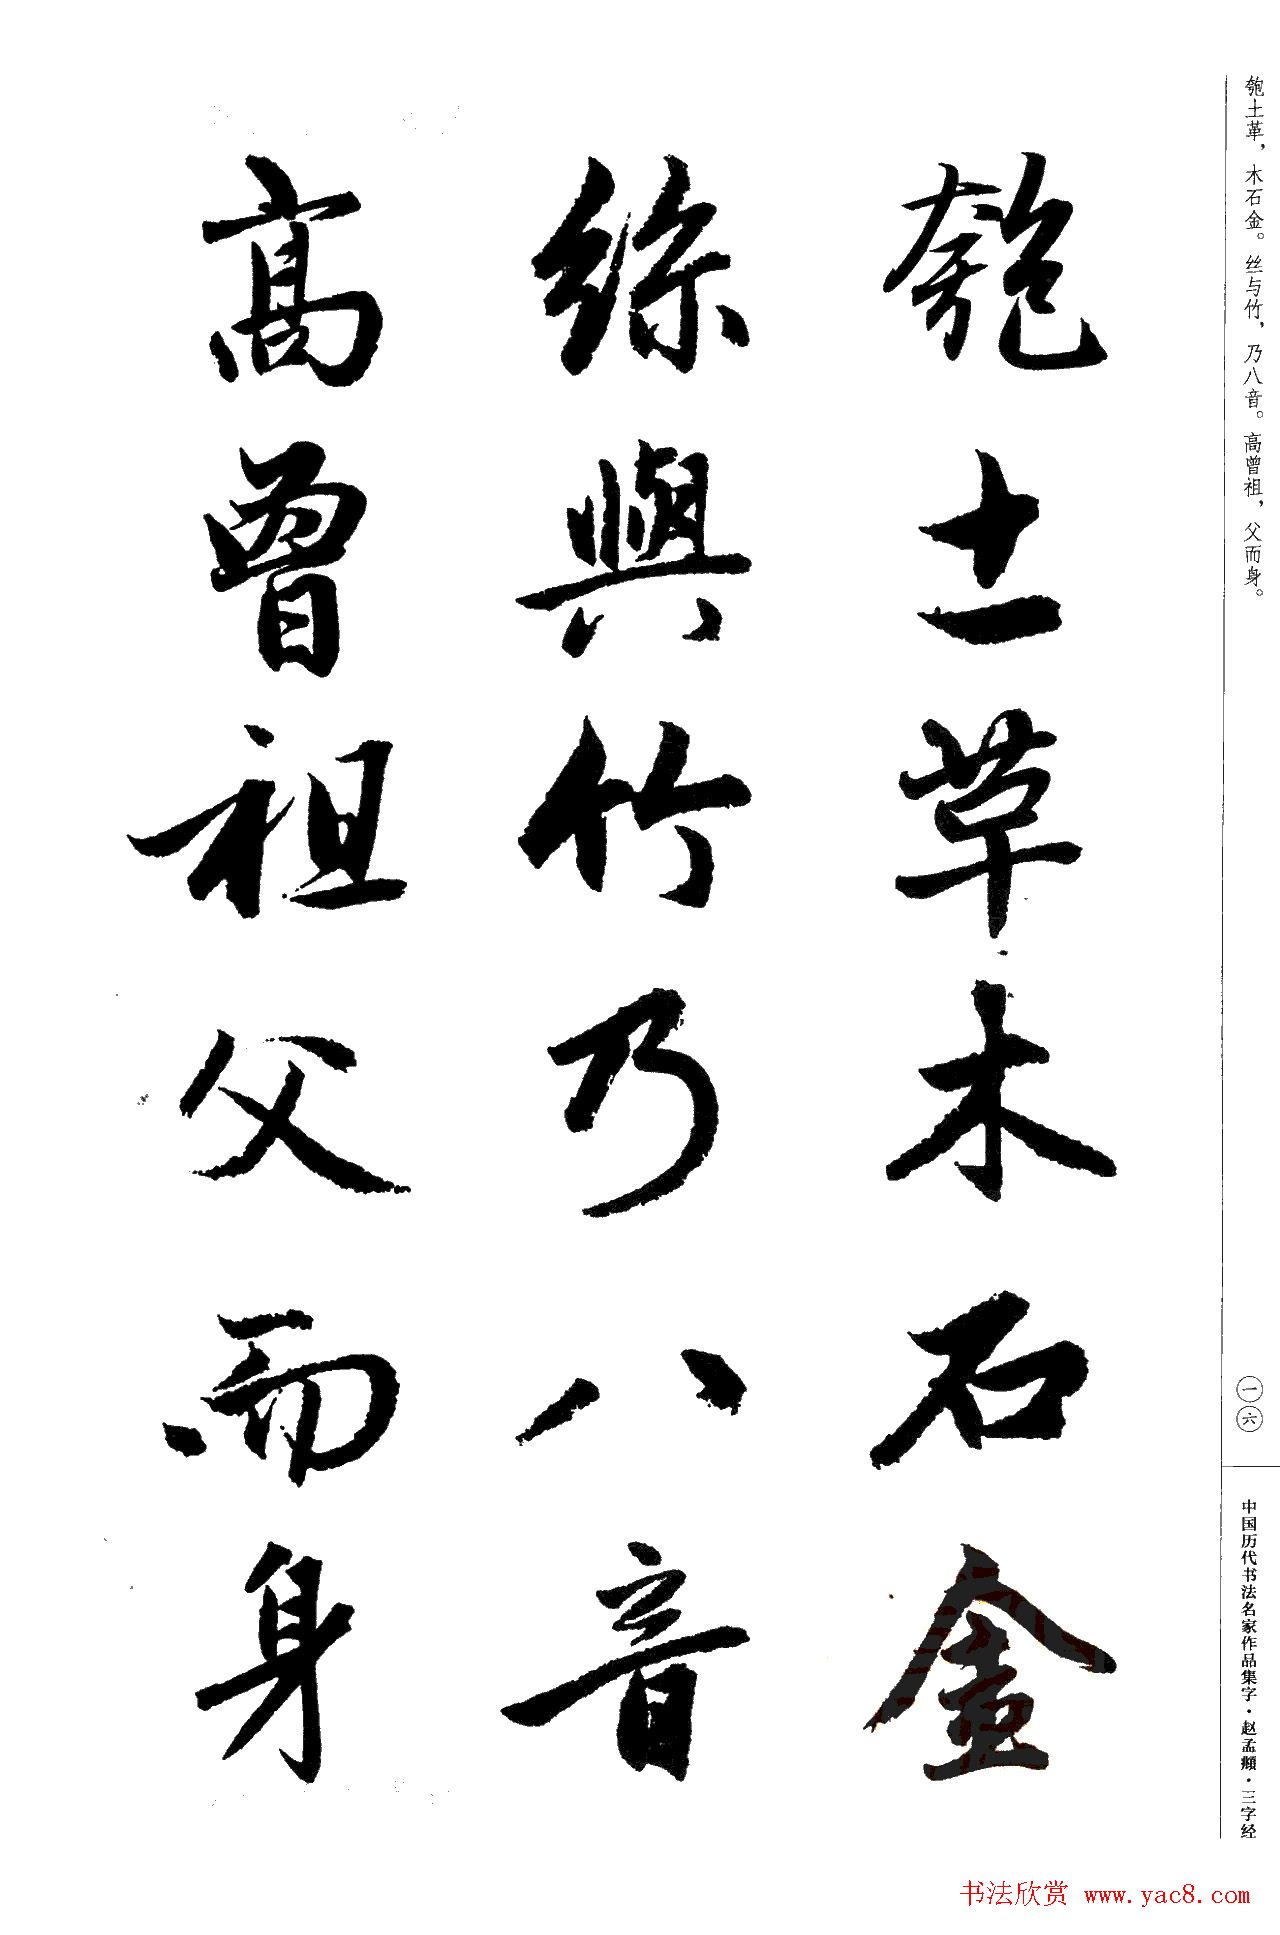 匏土革，木石金。丝与竹，乃八音。高曾祖，父而身。
一六
中国历代书法名家作品集字·赵孟頫·三字经
匏土革木石金
絲與竹乃八音
高曾祖父而身
书法欣赏 www.yac8.com